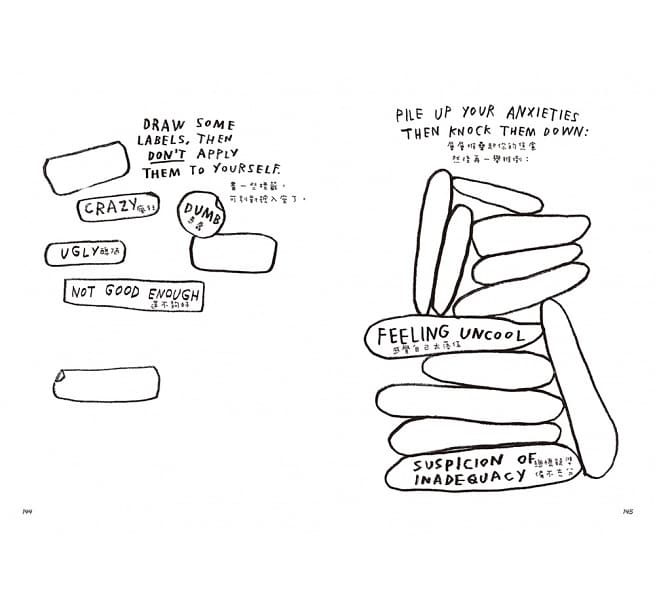 DRAW SOME
LABELS, THEN
DON'T APPLY
THEM TO YOURSELF.
畫一些標籤,
可別對號入座了。
CRAZY瘋狂
DUMB
愚蠢
UGLY醜陋
NOT GOOD ENOUGH
還不夠好
144
PILE UP YOUR ANXIETIES
THEN KNOCK THEM DOWN:
層層堆疊起你的焦慮
然後再一舉推倒:
FEELING UNCOOL
感覺自己太
SUSPICION OF
INADEQUACY
總懷疑準
備不充分
145